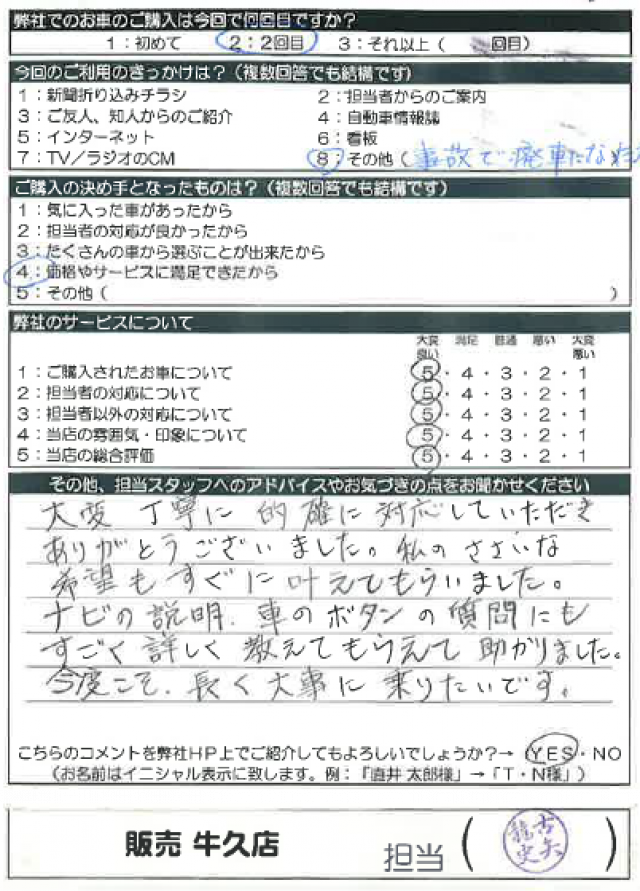 弊社でのお車のご購入は今回で何回目ですか？
1：初めて 2：2回目 3：それ以上（ 回目）
今回のご利用のきっかけは？（複数回答でも結構です）
1：新聞折り込みチラシ 2：担当者からのご案内
3：ご友人、知人からのご紹介 4：自動車情報誌
5：インターネット 6：看板
7：TV／ラジオのCM 8：その他（事故で廃車になった）
ご購入の決め手となったものは？（複数回答でも結構です）
1：気に入った車があったから
2：担当者の対応が良かったから
3：たくさんの車から選ぶことが出来たから
4：価格やサービスに満足できたから
5：その他（ ）
弊社のサービスについて
大変良い 満足 普通 悪い 大変悪い
1：ご購入されたお車について 5・4・3・2・1
2：担当者の対応について 5・4・3・2・1
3：担当者以外の対応について 5・4・3・2・1
4：当店の雰囲気・印象について 5・4・3・2・1
5：当店の総合評価 5・4・3・2・1
その他、担当スタッフへのアドバイスやお気づきの点をお聞かせください
大変 丁寧に 的確に 対応していただき
ありがとうございました。私のささいな
希望もすぐに叶えてもらいました。
ナビの説明、車のボタンの質問にも
すごく詳しく教えてもらえて助かりました。
今度こそ、長く大事に乗りたいです。
こちらのコメントを弊社HP上でご紹介してもよろしいでしょうか？→（YES・NO
（お名前はイニシャル表示に致します。例：「直井 太郎様」→「T・N様」）
販売 牛久店 担当（ 古矢 龍史 ）